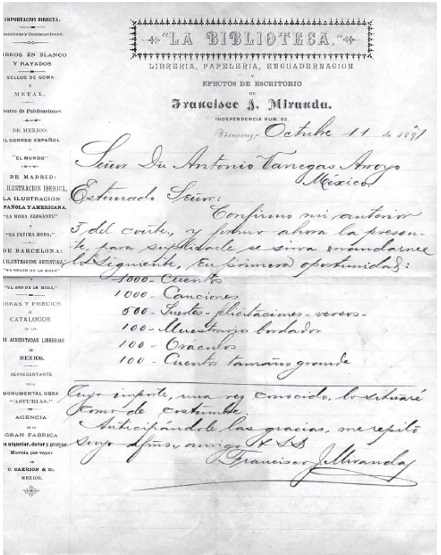 "LA BIBLIOTECA."
LIBRERIA, PAPELERIA, ENCUADERNACION
Y
EFECTOS DE ESCRITORIO
DE
Francisco J. Miranda.
INDEPENDENCIA NUM. 60.
Veracruz, Octubre 11 de 1897
Señor Dn Antonio Vanegas Arroyo
México
Estimado Señor:
Confirmo mi anterior
del corrte, y formo ahora la presen-
te, para suplicarle se sirva mandarme
lo siguiente, en primera oportunidad:
1000 - Cuentos
1000 - Canciones
500 - Suertes - felicitaciones - versos -
100 - Muestrario bordados
100 - Oraculos
100 - Cuento tamaño grande
Cuyo importe, una vez conocido, lo situaré
como de costumbre.
Anticipándole las gracias, me repito
suyo afmo. amigo y S.S.
Francisco J. Miranda
IMPORTACION DIRECTA.
LIBROS EN BLANCO
Y RAYADOS
SELLOS DE GOMA
Y
METAL.
Centro de Publicaciones
DE MEXICO:
EL CORREO ESPAÑOL
Y
"EL MUNDO"
DE MADRID:
ILUSTRACION IBERICA,
LA ILUSTRACION
ESPAÑOLA Y AMERICANA.
"LA MODA ELEGANTE"
Y
"LA ULTIMA MODA."
DE BARCELONA:
LA ILUSTRACION ARTISTICA,
"EL SALON DE LA MODA"
"EL ECO DE LA MODA."
OBRAS Y PRECIOS
DE
CATALOGOS
DE LAS
MAS ACREDITADAS LIBRERIAS
DE
MEXICO.
REPRESENTANTE
DE LA
MONUMENTAL OBRA
"ASTURIAS."
AGENCIA
DE LA
GRAN FABRICA
Movida por vapor
DE
C. CARRION & Co.
MEXICO.